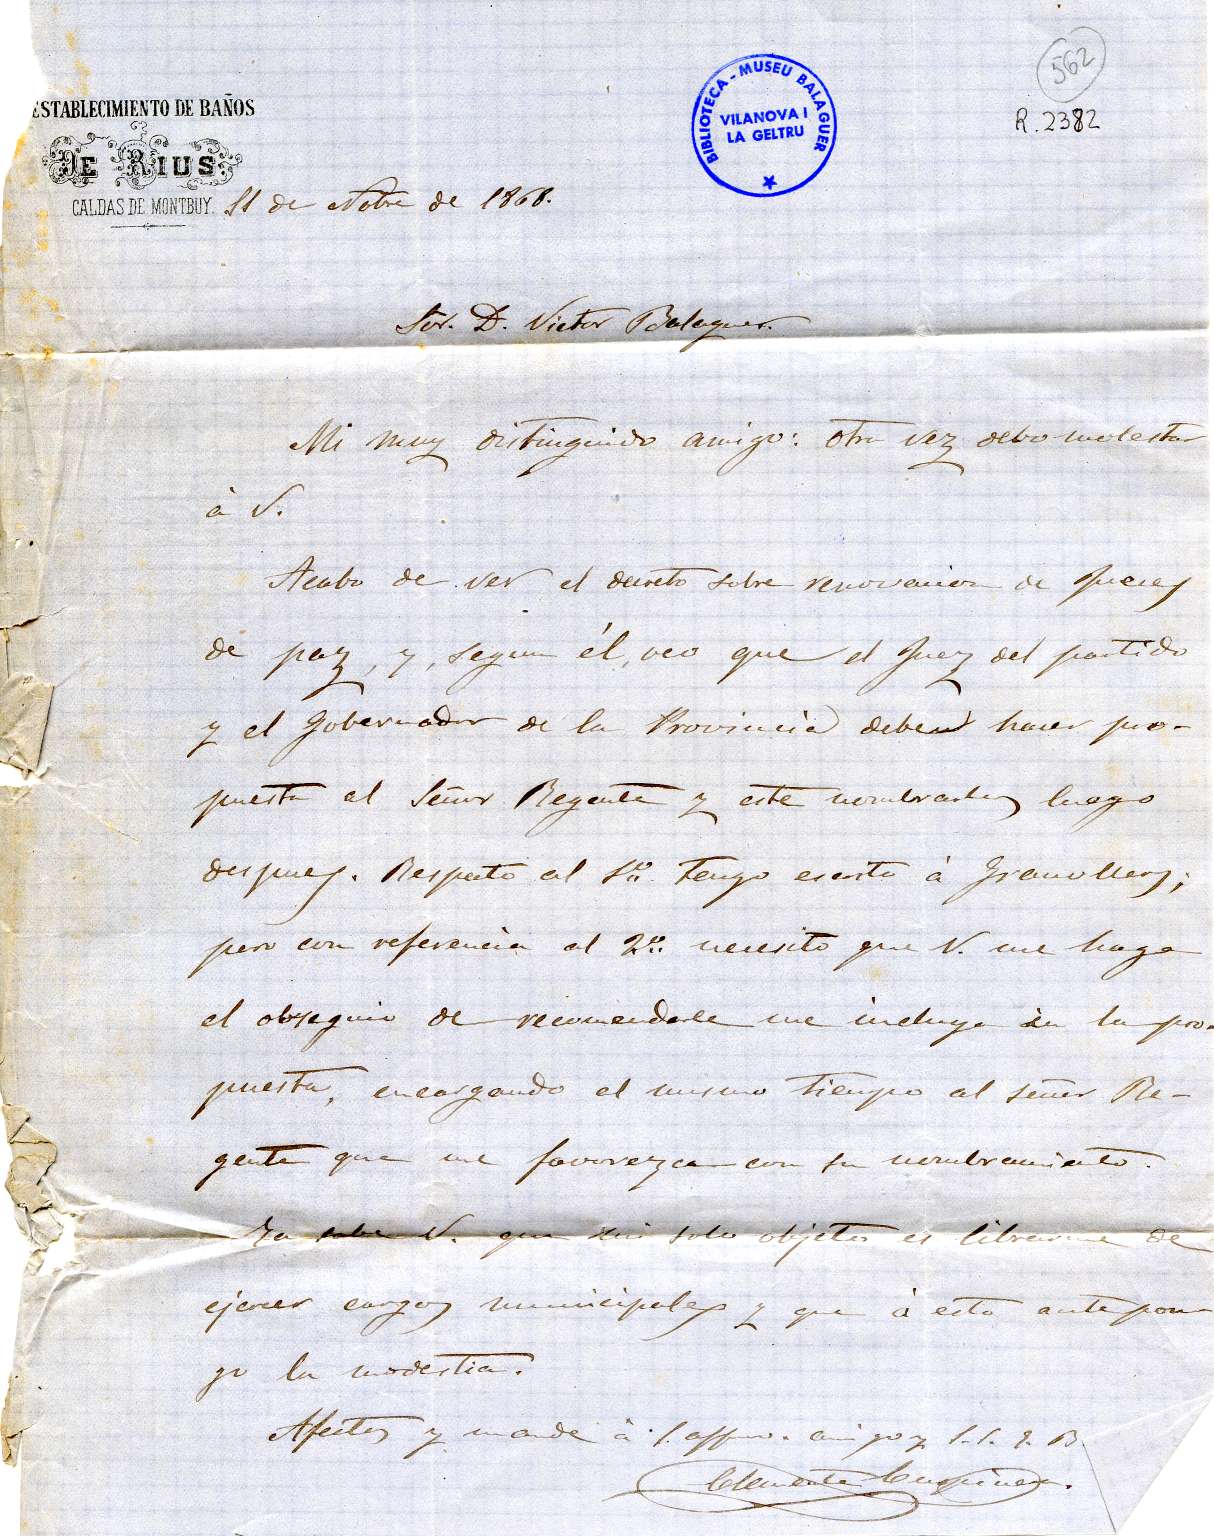 562
R. 2382
BIBLIOTECA - MUSEU BALAGUER
VILANOVA I
LA GELTRU
ESTABLECIMIENTO DE BAÑOS
DE RIUS
CALDAS DE MONTBUY.
11 de Nbre de 1868.
Sor. D. Victor Balaguer.
Mi muy distinguido amigo: otra vez debo molestar
à V.
Acabo de ver el decreto sobre renovacion de Jueces
de paz, y, segun él, veo que el Juez del partido
y el Gobernador de la Provincia deben hacer pro-
puesta al Señor Regente y este nombrarlos luego
despues. Respecto al 1º. tengo escrito à Granollers;
pero con referencia al 2º. necesito que V. me haga
el obsequio de recomendarle me incluya en la pro-
puesta, encargando al mismo tiempo al señor Re-
gente que me favorezca con su nombramiento.
Ya sabe V. que mi solo objeto es librarme de
ejercer cargos municipales y que à esto antepon-
go la modestia.
Afectos y mande à S. affmo. amigo y S. S. q. B.
Clemente Cuspinera.